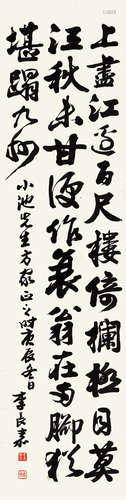 上盡江邊百尺樓倚欄極目莫
江秋未甘便作衰翁在兩腳猶
堪蹋九州
小池先生方家正之時庚辰冬日 李良